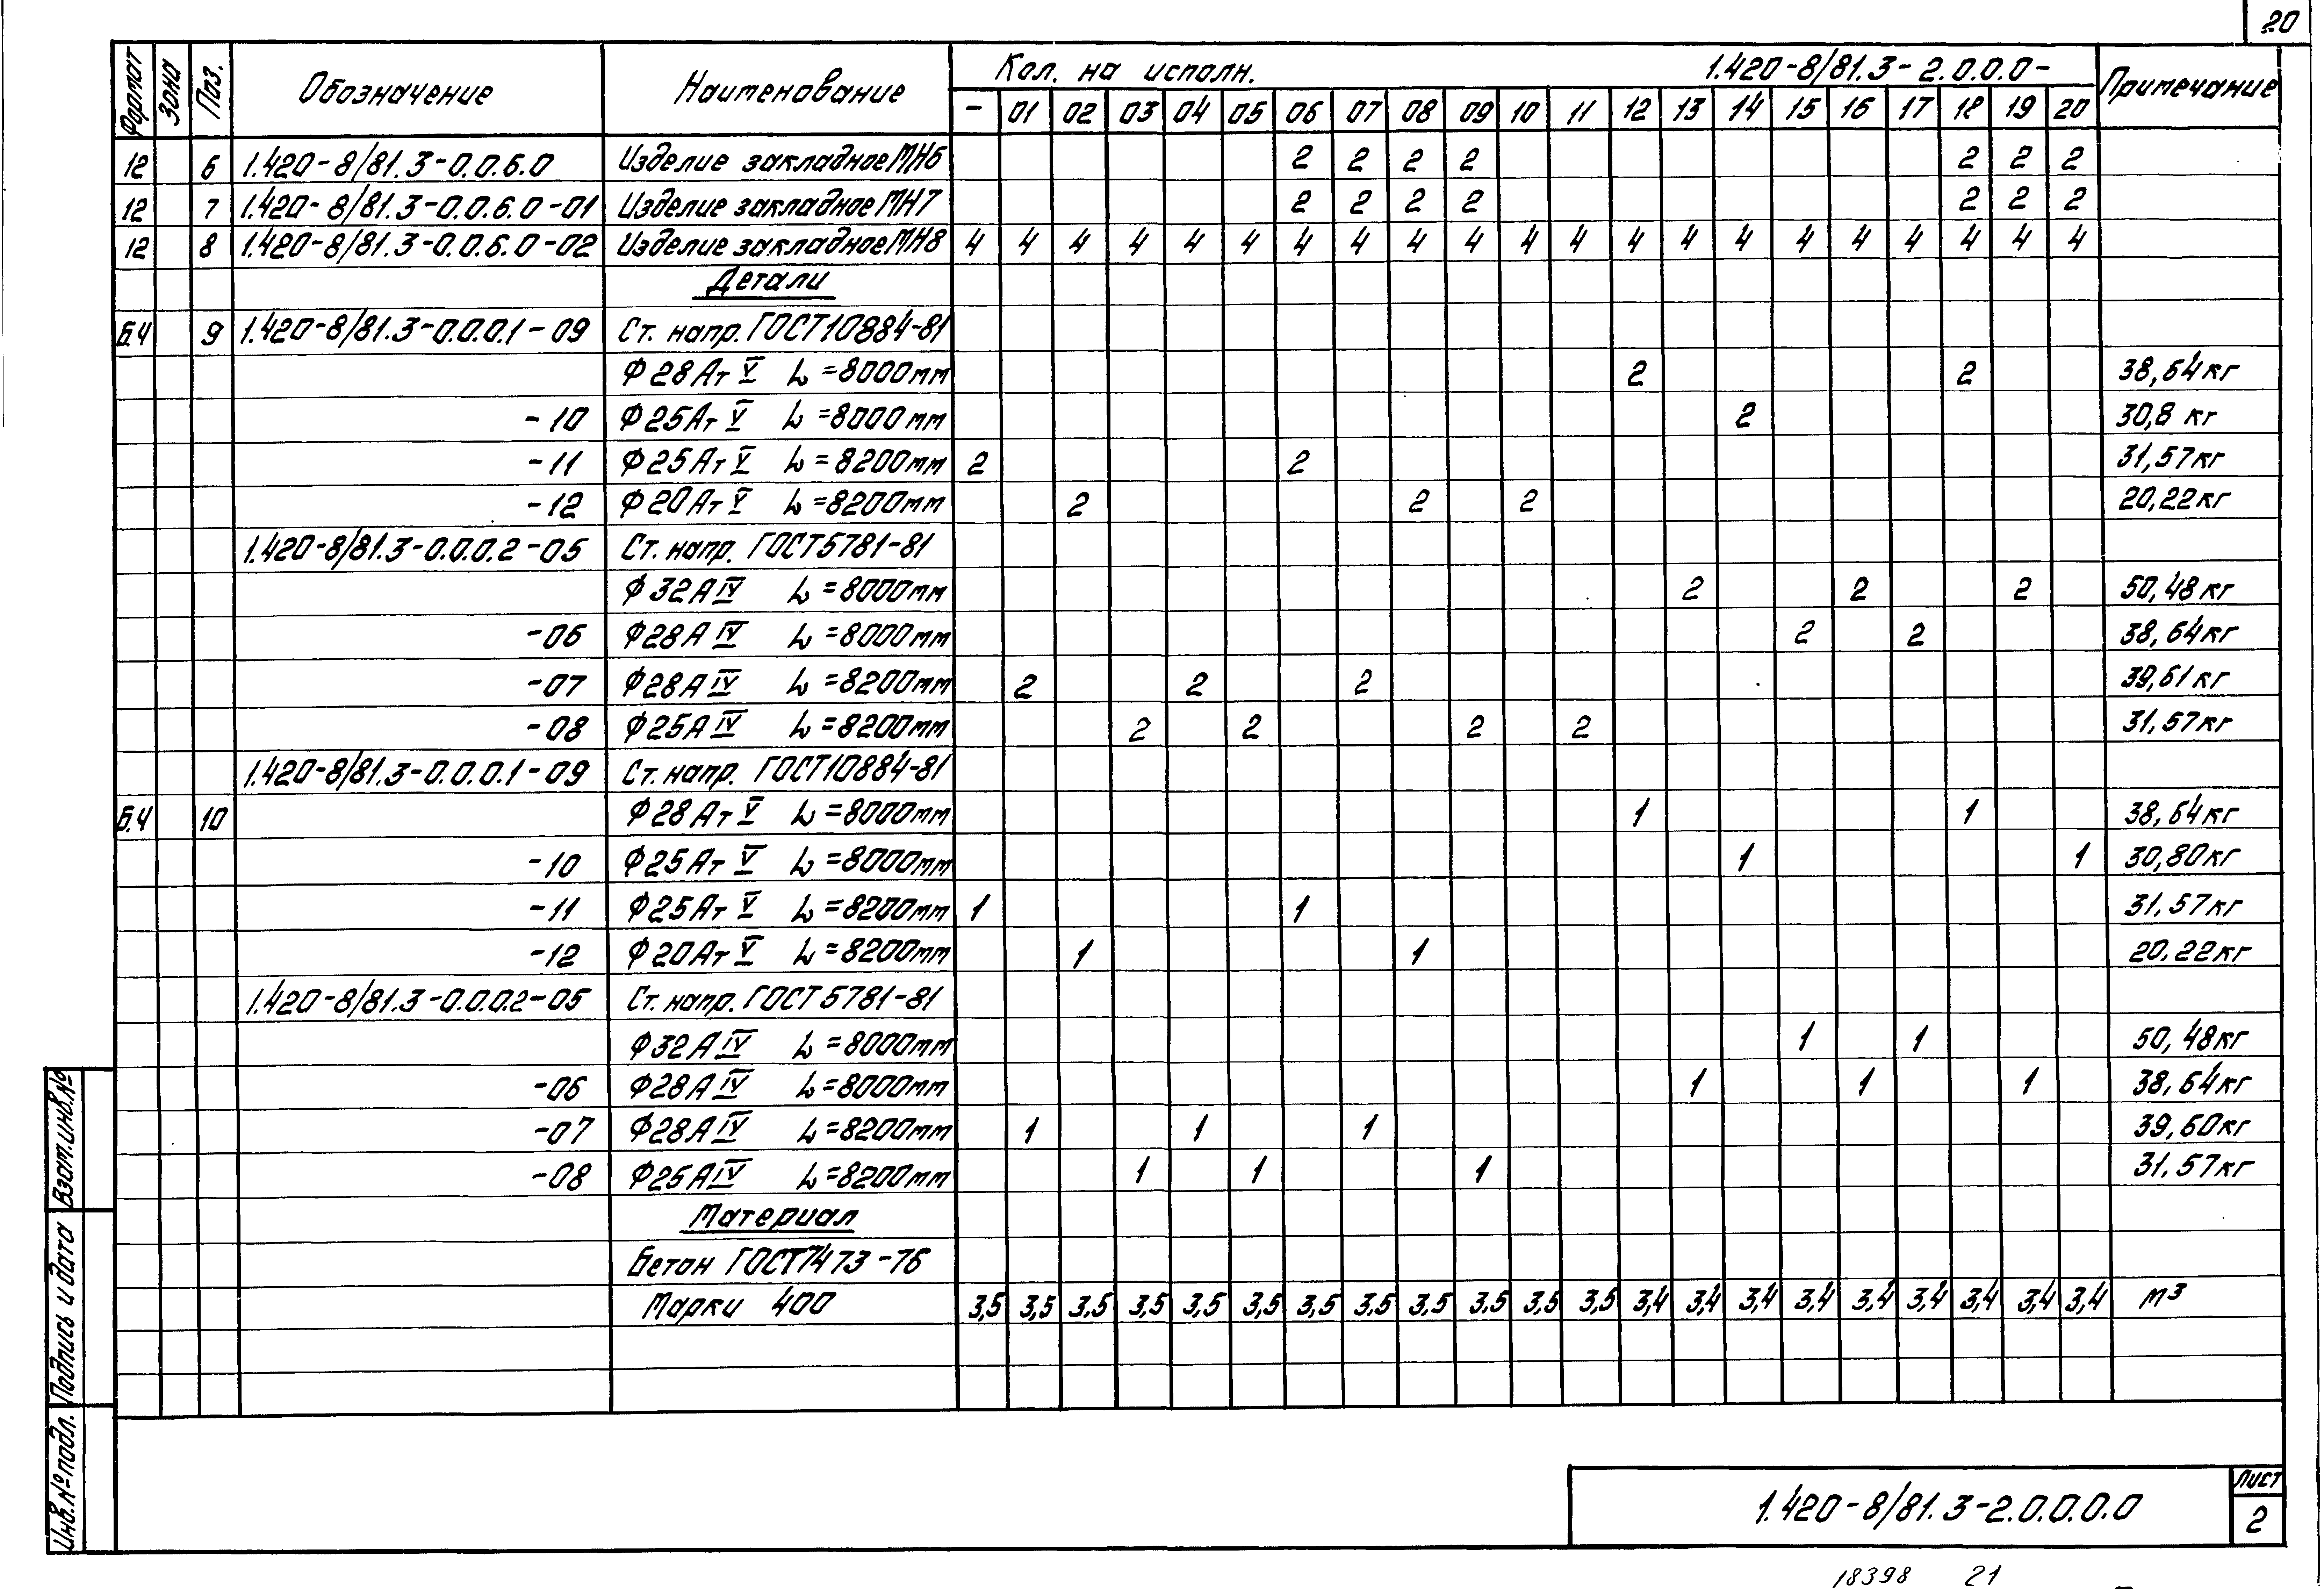 20
Формат Зона Поз. Обозначение Наименование Кол. на исполн. 1.420-8/81.3-2.0.0.0- Примечание
- 01 02 03 04 05 06 07 08 09 10 11 12 13 14 15 16 17 18 19 20
12 6 1.420-8/81.3-0.0.6.0 Изделие закладное МН6 2 2 2 2 2 2 2
12 7 1.420-8/81.3-0.0.6.0-01 Изделие закладное МН7 2 2 2 2 2 2 2
12 8 1.420-8/81.3-0.0.6.0-02 Изделие закладное МН8 4 4 4 4 4 4 4 4 4 4 4 4 4 4 4 4 4 4 4 4 4
Детали
Б.Ч 9 1.420-8/81.3-0.0.0.1-09 Ст. напр. ГОСТ10884-81
Ф28Ат V L=8000мм 2 2 38,64кг
-10 Ф25Ат V L=8000мм 2 30,8 кг
-11 Ф25Ат V L=8200мм 2 2 31,57кг
-12 Ф20Ат V L=8200мм 2 2 2 20,22кг
1.420-8/81.3-0.0.0.2-05 Ст. напр. ГОСТ5781-81
Ф32А IV L=8000мм 2 2 2 50,48кг
-06 Ф28А IV L=8000мм 2 2 38,64кг
-07 Ф28А IV L=8200мм 2 2 2 39,61кг
-08 Ф25А IV L=8200мм 2 2 2 2 31,57кг
1.420-8/81.3-0.0.0.1-09 Ст. напр. ГОСТ10884-81
Б.Ч 10 Ф28Ат V L=8000мм 1 1 38,64кг
-10 Ф25Ат V L=8000мм 1 1 30,80кг
-11 Ф25Ат V L=8200мм 1 1 31.57кг
-12 Ф20Ат V L=8200мм 1 1 20.22кг
1.420-8/81.3-0.0.0.2-05 Ст. напр. ГОСТ5781-81
Ф32А IV L=8000мм 1 1 50,48кг
-06 Ф28А IV L=8000мм 1 1 1 38,64кг
-07 Ф28А IV L=8200мм 1 1 1 39,60кг
-08 Ф25А IV L=8200мм 1 1 1 31.57кг
Материал
Бетон ГОСТ7473-76
Марки 400 3,5 3,5 3,5 3,5 3,5 3,5 3,5 3,5 3.5 3.5 3,5 3,5 3,4 3,4 3,4 3,4 3,4 3,4 3,4 3,4 3,4 м³
Взам.инв.№
Подпись и дата
Инв.№подл.
1.420-8/81.3-2.0.0.0.0
Лист
2
18398 21